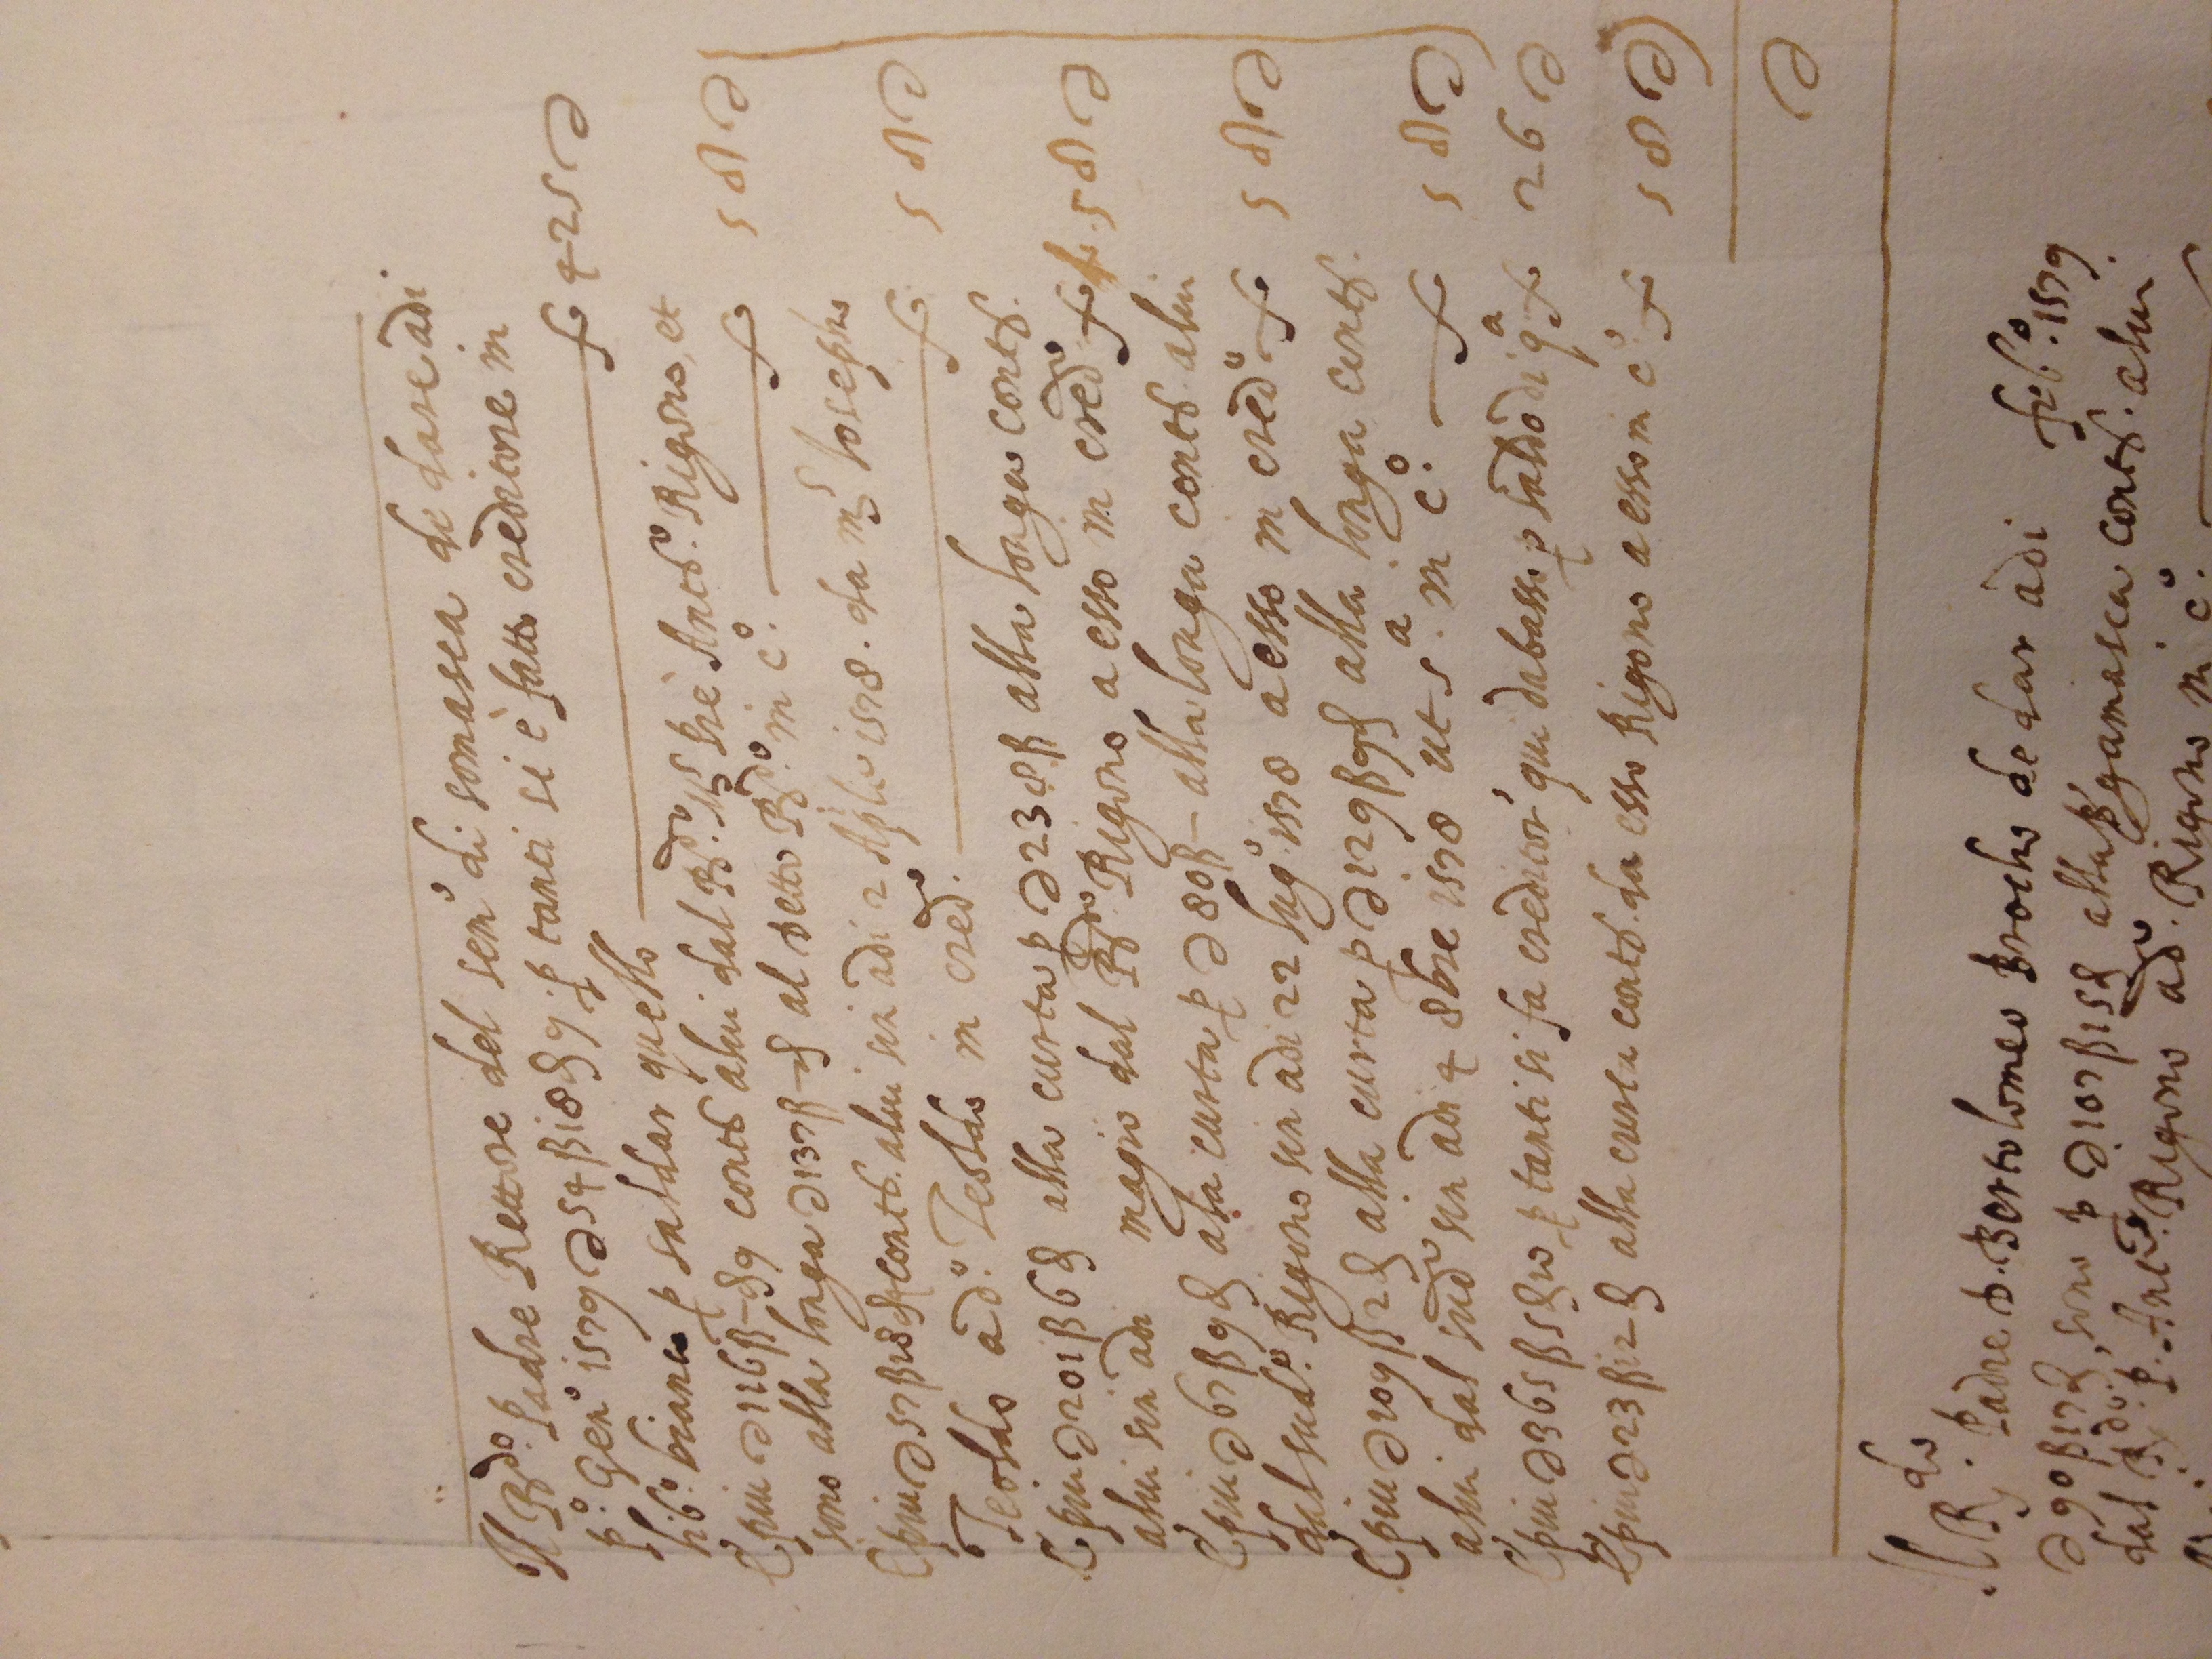 Il Rdo. Padre Rettore del semo di somasca de dare adi
po. Geno 1579 ∂ 54 β 18 ₰ 9 p tanti si è fatto creditore in f 425 ∂
libo bianco p saldar questo
E piu ∂ 1126 β – ₰ 9 contti alui dal Rdo. Ms pre Anto. Rigono, et
sono alla longa ∂ 137 β – ₰ al detto Rdo. in co. f 5 8 ∂
E piu ∂ 57 β 18 ₰ contti. alui sin adi 2 Aplo 1578. da ms Iosepho
Teoldo ado. Teoldo in credo. f 5 8 ∂
E piu ∂ 201 β 6 ₰ alla curta p ∂ 238 β alla longa contti.
alui sin adi magio dal Rdo Rigono a esso in credo f. 5 8 ∂
E piu ∂ 67 β 9 ₰ alla curta p ∂ 80 β – alla longa contti. alui
dal sudo. Rigono sin adi 22 lugo 1578 a esso in credo f 5 8 ∂
E piu ∂ 109 β 12 ₰ alla curta p ∂ 129 β 9 ₰ alla longa contti.
alui dal sudo sin adi 4 8bre 1578 ut sa. in co. f 5 8 ∂
E piu ∂ 365 β 5 ₰ p tanti si fa creditor qui dabasso p saldo di qa f 2 6 ∂
E piu ∂ 23 β 12 ₰ alla curta contti. da esso Rigono a esso in co f 5 8 ∂
∂
Il Rdo. Padre d. Bertolomeo Brocho de dar adi febo. 1579
∂ 90 β 12 ₰, sono p ∂ 107 β 15 ₰ alla bgamasca contti. alui
dal Rdo. p. Anto. Rigono ado. Rigono in co.